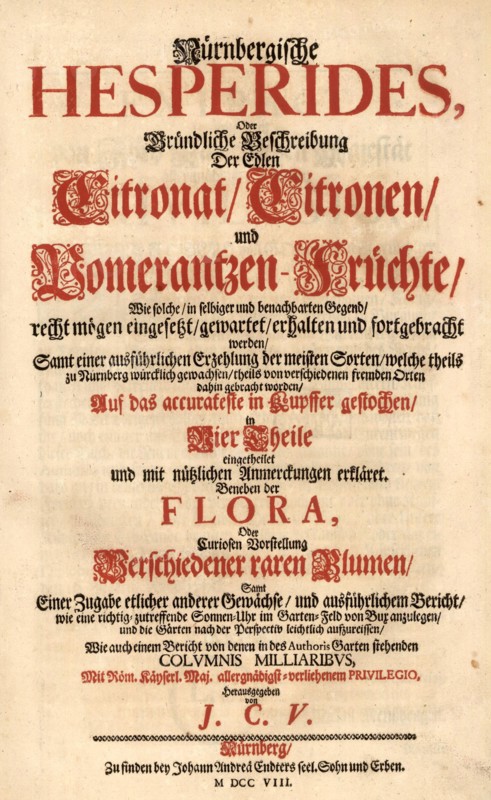 Nürnbergische
HESPERIDES,
Oder
Gründliche Beschreibung
Der Edlen
Citronat/ Citronen/
und
Pomerantzen-Früchte/
Wie solche/ in selbiger und benachbarten Gegend/
recht mögen eingesetzt/ gewartet/ erhalten und fortgebracht
werden/
Samt einer ausführlichen Erzehlung der meisten Sorten/ welche theils
zu Nürnberg würcklich gewachsen/ theils von verschiedenen fremden Orten
dahin gebracht worden/
Auf das accurateste in Kupffer gestochen/
in
Vier Theile
eingetheilet
und mit nützlichen Anmerckungen erkläret.
Beneben der
FLORA,
Oder
Curiosen Vorstellung
Verschiedener raren Blumen/
Samt
Einer Zugabe etlicher anderer Gewächse/ und ausführlichem Bericht/
wie eine richtig-zutreffende Sonnen-Uhr im Garten-Feld von Bux anzulegen/
und die Gärten nach der Perspectiv leichtlich aufzureissen/
Wie auch einem Bericht von denen in des Authoris Garten stehenden
COLVMNIS MILLIARIBVS,
Mit Röm. Käyserl. Maj. allergnädigst-verliehenem PRIVILEGIO,
Herausgegeben
von
J. C. V.
Nürnberg/
Zu finden bey Johann Andreä Endters seel. Sohn und Erben.
M DCC VIII.